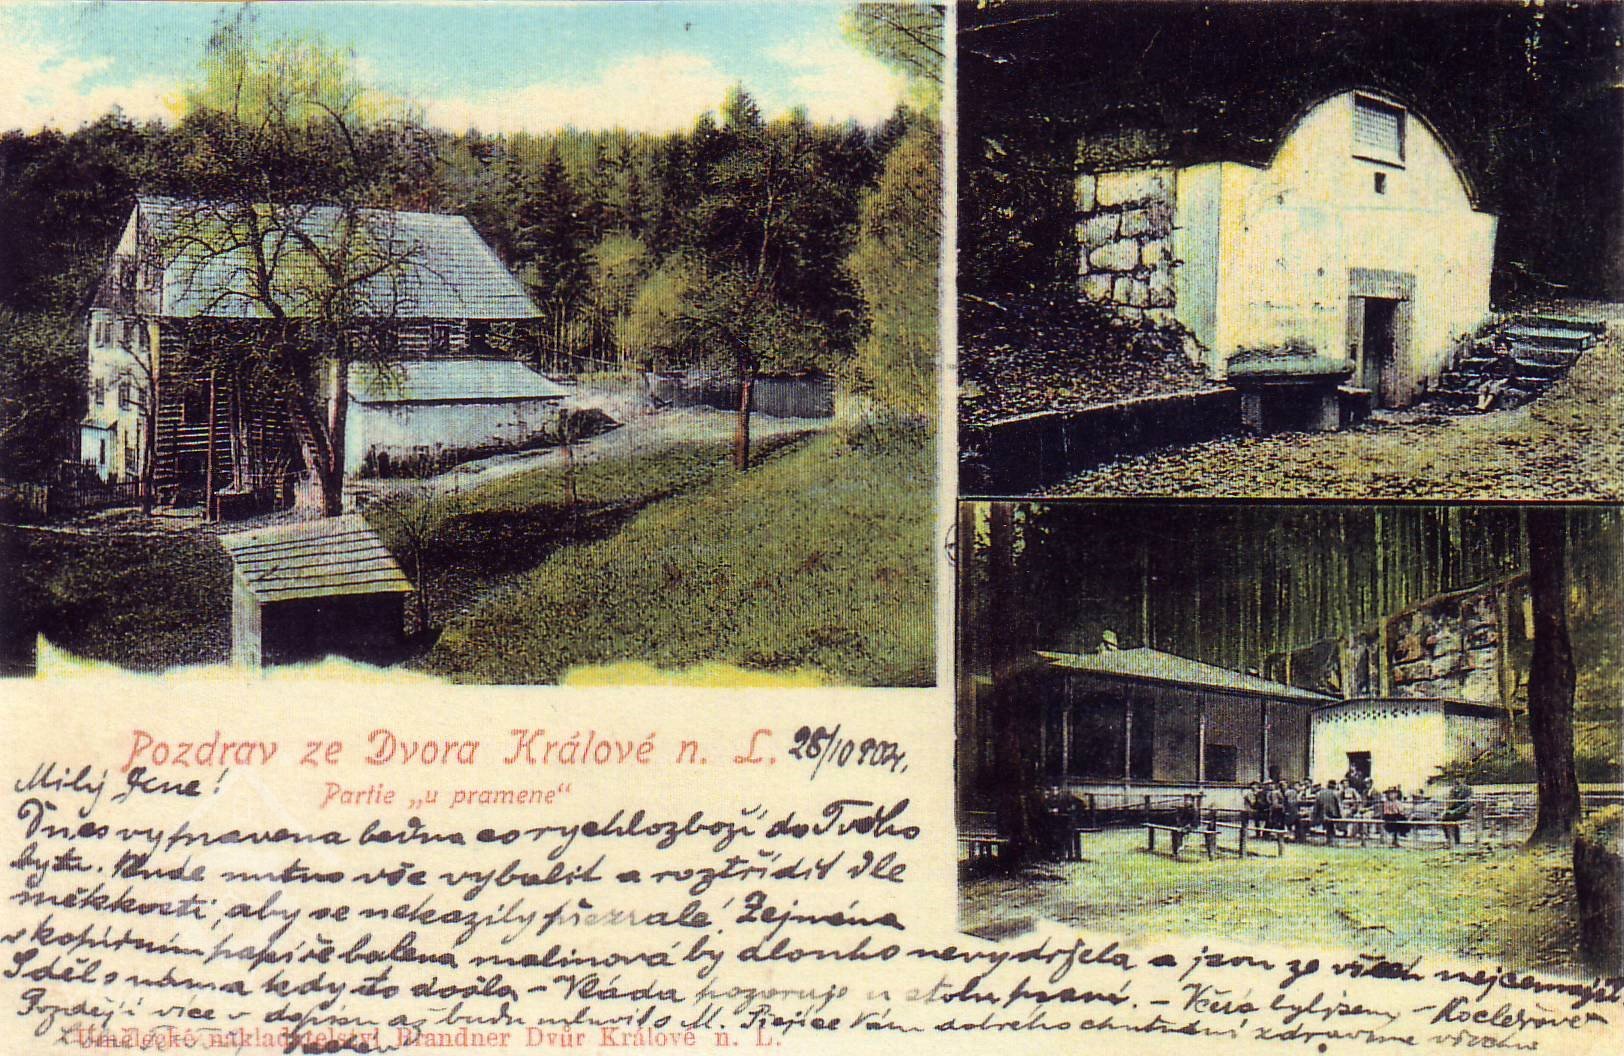 Pozdrav ze Dvora Králové n. L. 28/10 902.
Partie „u pramene“
Milý Jene!
Dnes vypravena bedna co rychlozboží do Tvého
bytu. Bude nutno vše vybalit a roztřídit dle
měkkosti, aby se nekazily přezralé! Zejména
v kopírním papíře balena malinová by dlouho nevydržela a jsou ze všech nejcennější
Sděl nám kdy to došlo – Vláda pozoruje u stolu psaní. – Včera byli
Později více v dopisu až budu mluvit s M. Přejíce Vám dobrého chutnání zdravíme všichni
Umělecké nakladatelství Brandner Dvůr Králové n. L.